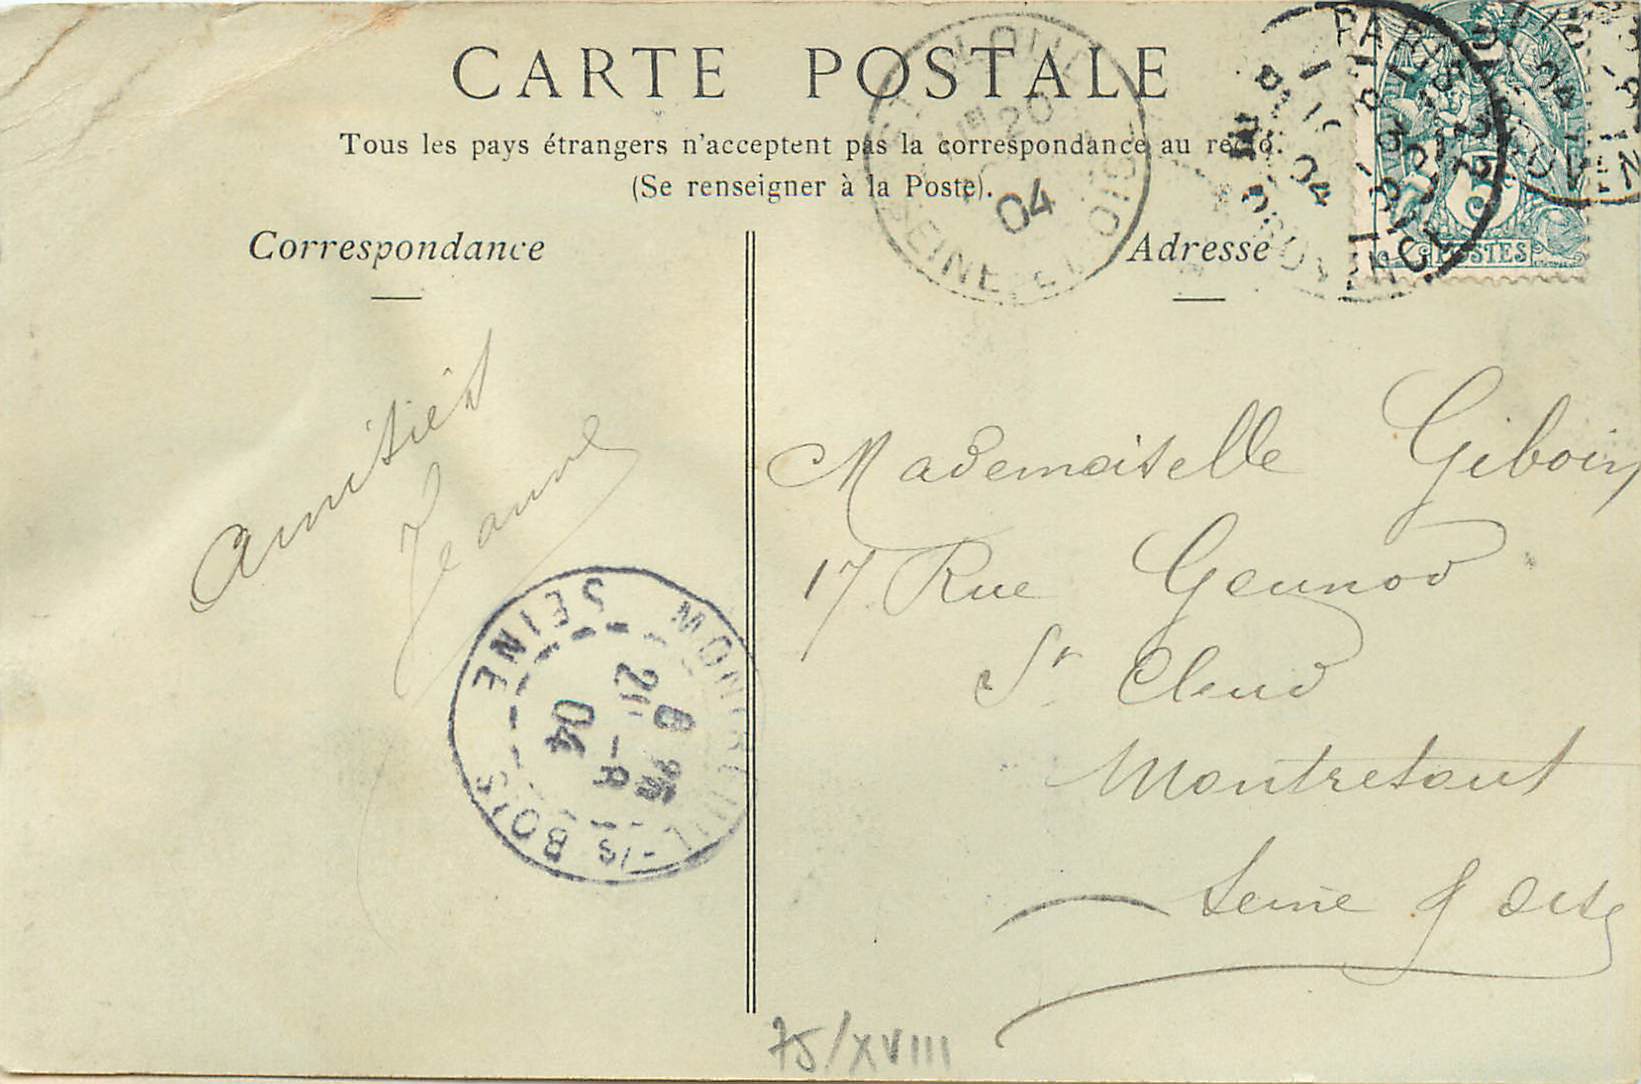 CARTE POSTALE
Tous les pays étrangers n'acceptent pas la correspondance au recto.
(Se renseigner à la Poste).
Correspondance
Adresse
Amitiés
Jeanne
Mademoiselle Giboin
17 Rue Gounod
St Cloud
Montretout
Seine & Oise
PARIS
PROVENCE
04
5
POSTES
ST CLOUD
20
04
SEINE ET OISE
MONTREUIL-/S BOIS
SEINE
21 -8
04
75/XVIII